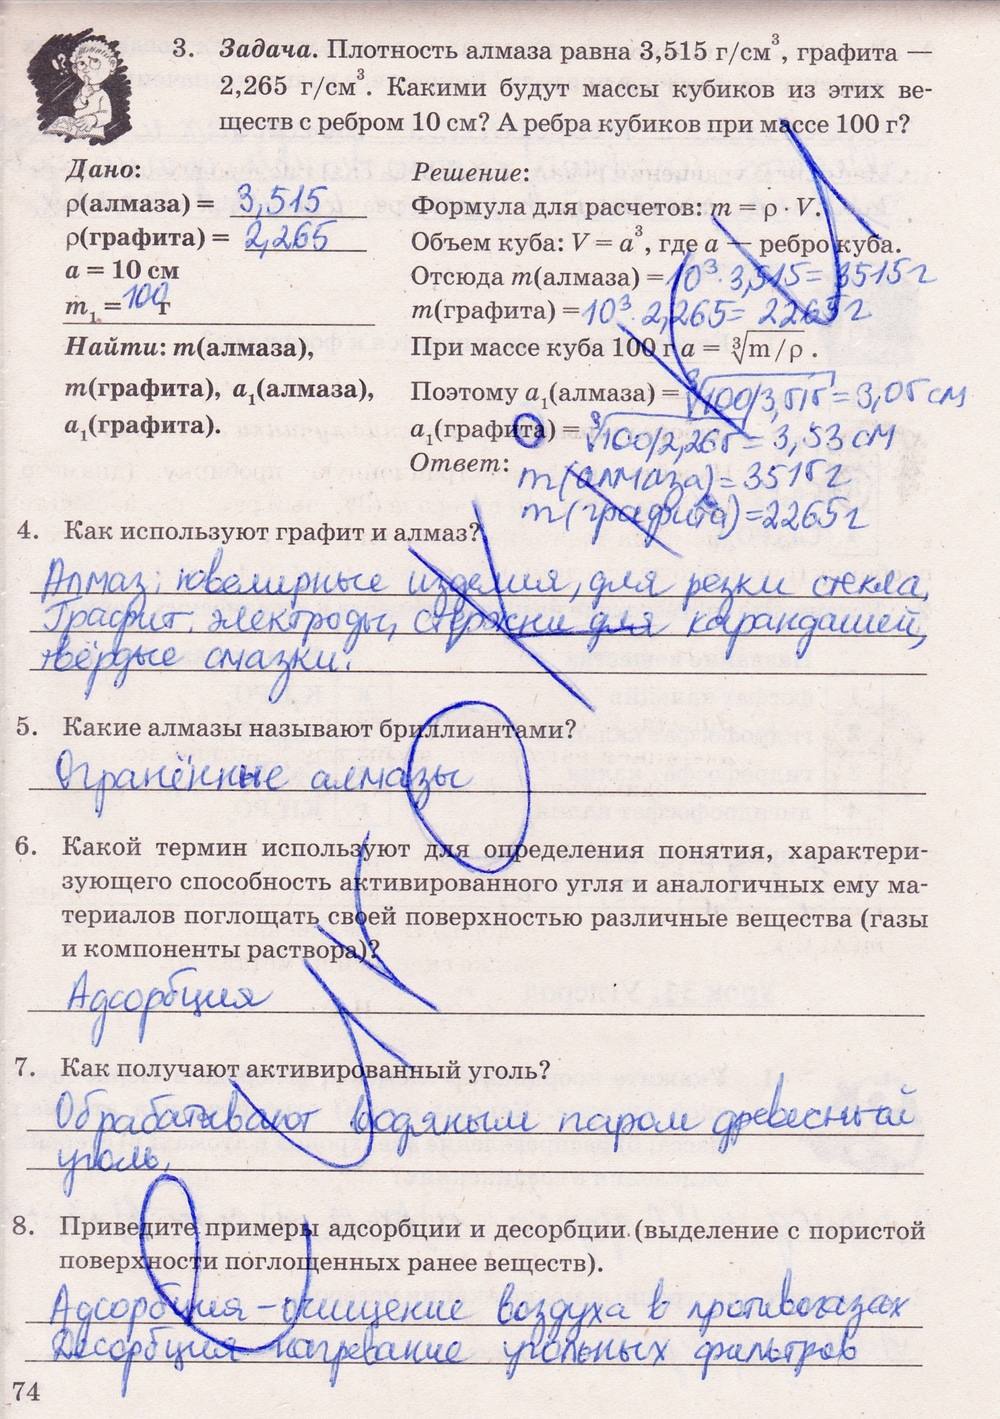 3. Задача. Плотность алмаза равна 3,515 г/см³, графита —
2,265 г/см³. Какими будут массы кубиков из этих ве-
ществ с ребром 10 см? А ребра кубиков при массе 100 г?
Дано:
ρ(алмаза) = 3,515
ρ(графита) = 2,265
a = 10 см
m₁ = 100 г
Найти: m(алмаза),
m(графита), a₁(алмаза),
a₁(графита).
Решение:
Формула для расчетов: m = ρ · V.
Объем куба: V = a³, где a — ребро куба.
Отсюда m(алмаза) = 10³ · 3,515 = 3515 г
m(графита) = 10³ · 2,265 = 2265 г
При массе куба 100 г a = ∛m/ρ .
Поэтому a₁(алмаза) = ∛100/3,515 = 3,05 см
a₁(графита) = ∛100/2,265 = 3,53 см
Ответ: m(алмаза) = 3515 г
m(графита) = 2265 г
4. Как используют графит и алмаз?
Алмаз: ювелирные изделия, для резки стекла,
Графит: электроды, стержни для карандашей,
твёрдые смазки.
5. Какие алмазы называют бриллиантами?
Огранённые алмазы
6. Какой термин используют для определения понятия, характери-
зующего способность активированного угля и аналогичных ему ма-
териалов поглощать своей поверхностью различные вещества (газы
и компоненты раствора)?
Адсорбция
7. Как получают активированный уголь?
Обрабатывают водяным паром древесный
уголь.
8. Приведите примеры адсорбции и десорбции (выделение с пористой
поверхности поглощенных ранее веществ).
Адсорбция – очищение воздуха в противогазах
Десорбция – нагревание угольных фильтров
74